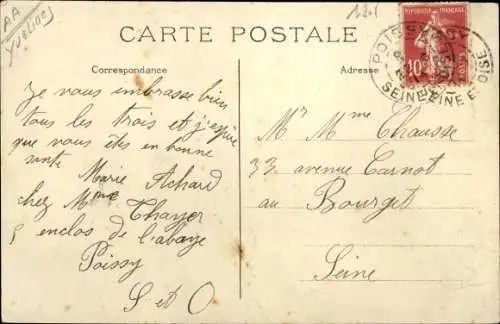 AA
Yvelines
CARTE POSTALE
Correspondance
Adresse
REPUBLIQUE FRANÇAISE
10c
POISSY
SEINE ET OISE
Je vous embrasse bien
tous les trois et j'espère
que vous êtes en bonne
santé
Marie Achard
chez Mme Thayer
5 enclos de l'abaye
Poissy
S et O
Mr Mme Chausse
33 avenue Carnot
au Bourget
Seine